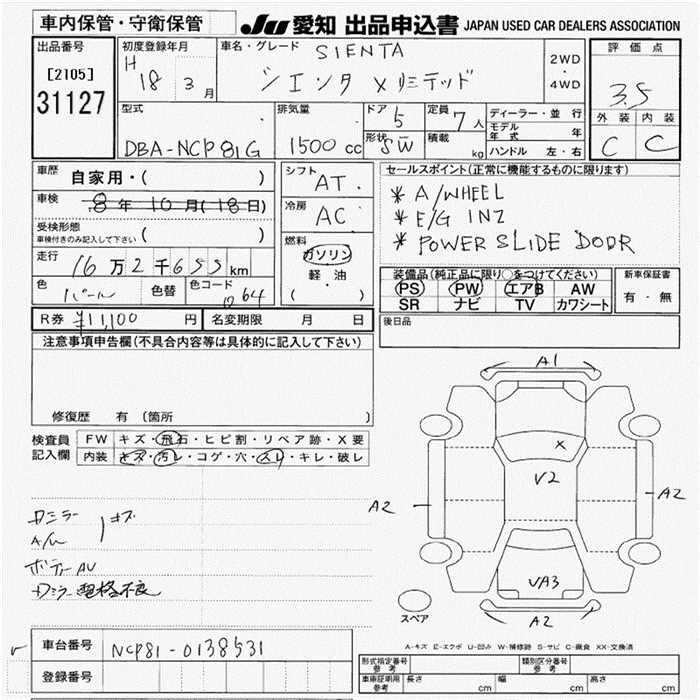 車内保管・守衛保管
JU 愛知 出品申込書 JAPAN USED CAR DEALERS ASSOCIATION
出品番号
[2105]
31127
初度登録年月
H 18 3月
車名・グレード SIENTA
シエンタ X リミテッド
2WD
・
4WD
評価点
3.5
外装 内装
C C
型式
DBA-NCP81G
排気量
1500cc
ドア 5
形状 SW
定員 7人
積載 kg
ディーラー・並行
モデル年式 年
ハンドル 左・右
車歴 自家用・( )
車検 8年10月(18日)
受検形態
車検付きのみ記入して下さい ( )
走行 16万2千655km
色 パール 色替 色コード 064
シフト AT
冷房 AC
燃料
ガソリン
軽油
( )
セールスポイント(正常に機能するものに限ります)
* A/WHEEL
* E/G INZ
* POWER SLIDE DOOR
装備品(純正品に限り○をつけてください)
PS PW エアB AW
SR ナビ TV カワシート
新車保証書
有・無
R券 ¥11,100円 名変期限 月 日
後日品
注意事項申告欄(不具合内容等は具体的に記入して下さい)
修復歴 有 (箇所
検査員記入欄
FW キズ・飛石・ヒビ割・リペア跡・X要
内装 キズ・汚レ・コゲ・穴・スレ・キレ・破レ
A1
X
V2
A2
A2
VA3
A2
スペア
Dミラー
A/W
キズ
ボディーAU
Dミラー 電格不良
A-キズ E-エクボ U-凹み W-補修跡 S-サビ C-腐食 XX-交換済
車台番号 NCP81-0138531
登録番号
型式指定番号 参考
類別区分番号 参考
車庫証明用 参考 長さ cm 幅 cm 高さ cm